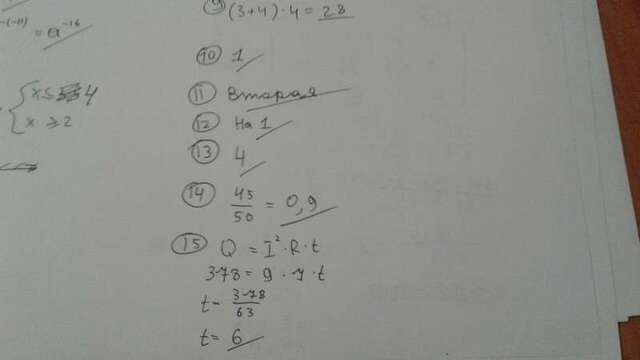 -(-11) = a⁻¹⁶
{x ≤ 4
x ≥ 2
9 (3+4)·4 = 28
10 1
11 Вторая
12 На 1
13 4
14 45/50 = 0,9
15 Q = I²·R·t
378 = 9·7·t
t = 378/63
t = 6